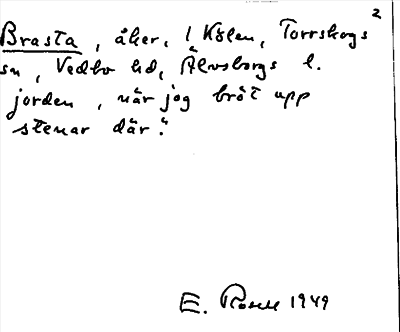 2
Brasta, åker, i Kölen, Torrskogs
sn, Vedbo hd, Älvsborgs l.
jorden, när jag bröt upp
stenar där."
E. Rosell 1949